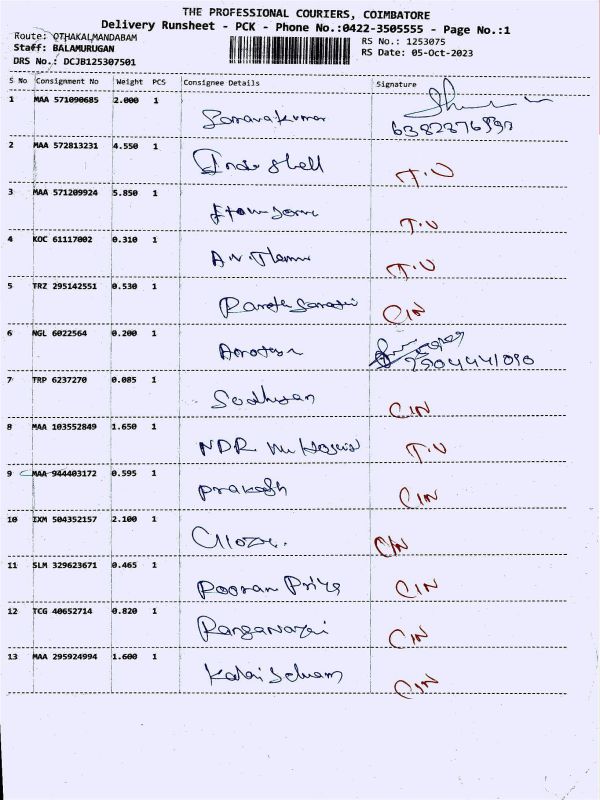 THE PROFESSIONAL COURIERS, COIMBATORE
Delivery Runsheet - PCK - Phone No.:0422-3505555 - Page No.:1
Route: OTHAKALMANDABAM
RS No.: 1253075
Staff: BALAMURUGAN
RS Date: 05-Oct-2023
DRS No.: DCJB125307501
S No Consignment No Weight PCS Consignee Details Signature
1 MAA 571090685 2.000 1 Saravakumar
2 MAA 572813231 4.550 1 shell T.U
3 MAA 571209924 5.850 1 T.U
4 KOC 61117002 0.310 1 T.U
5 TRZ 295142551 0.530 1 CIN
6 NGL 6022564 0.200 1
7 TRP 6237270 0.085 1 CIN
8 MAA 103552849 1.650 1 NDR T.U
9 MAA 944403172 0.595 1 Prakash CIN
10 IXM 504352157 2.100 1 CIN
11 SLM 329623671 0.465 1 Pooran Priya CIN
12 TCG 40652714 0.820 1 CIN
13 MAA 295924994 1.600 1 CIN